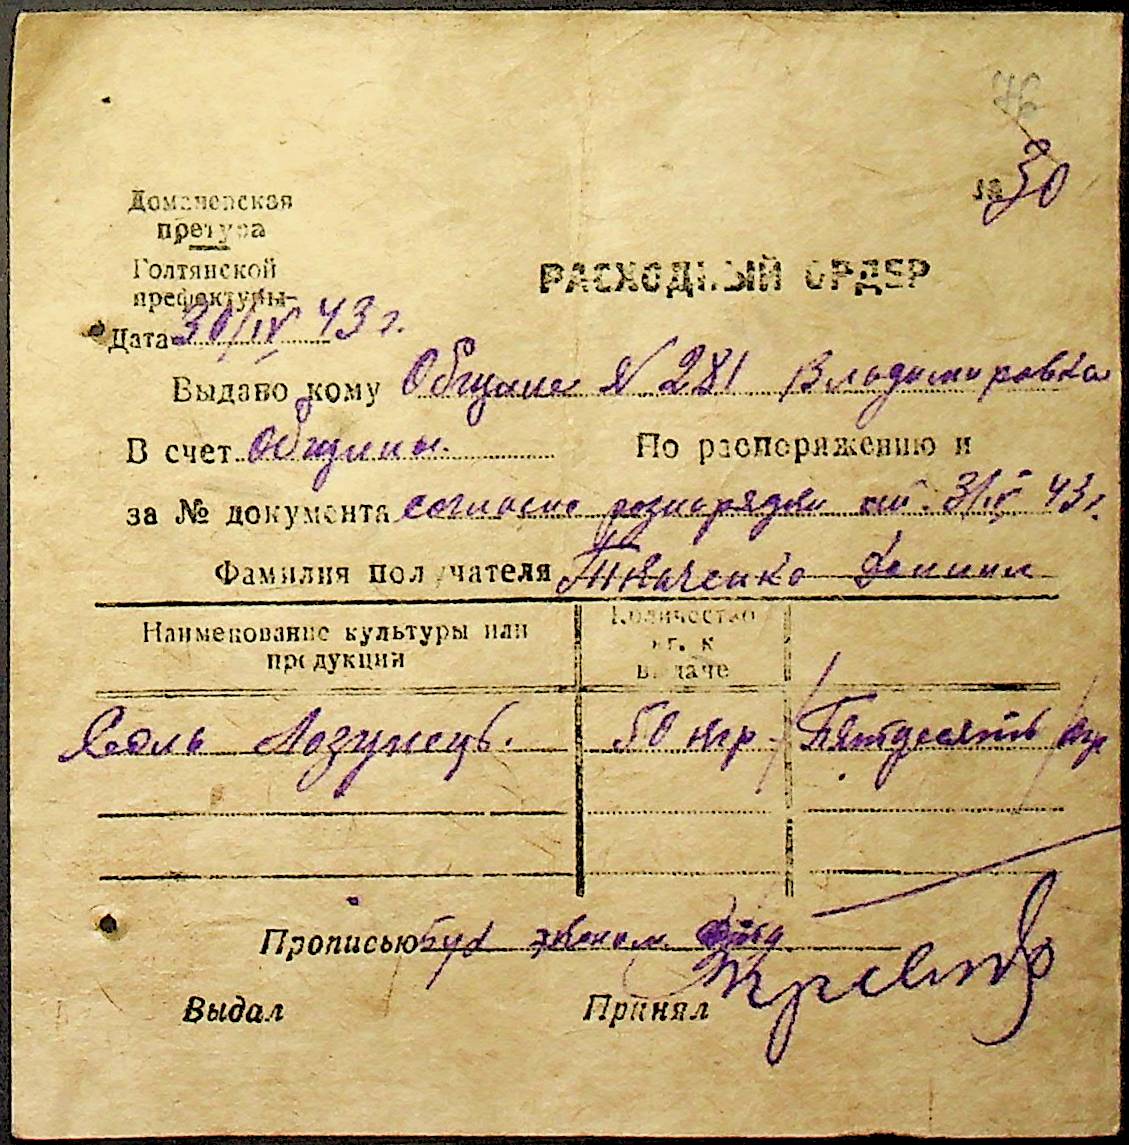 76
№ 30
Доманевская
претура
Голтянской
префектуры
РАСХОДНЫЙ ОРДЕР
Дата 30/IV 43 г.
Выдано кому Общине № 281 Владимировка
В счет Общины. По распоряжению и
за № документа согласно розпорядж 3/IV 43 г.
Фамилия получателя Ткаченко
Наименование культуры или
продукции
Количество
кг. к
выдаче
Соль 50 кгр. / Пятдесять / кгр
Прописью Бух
Выдал Принял